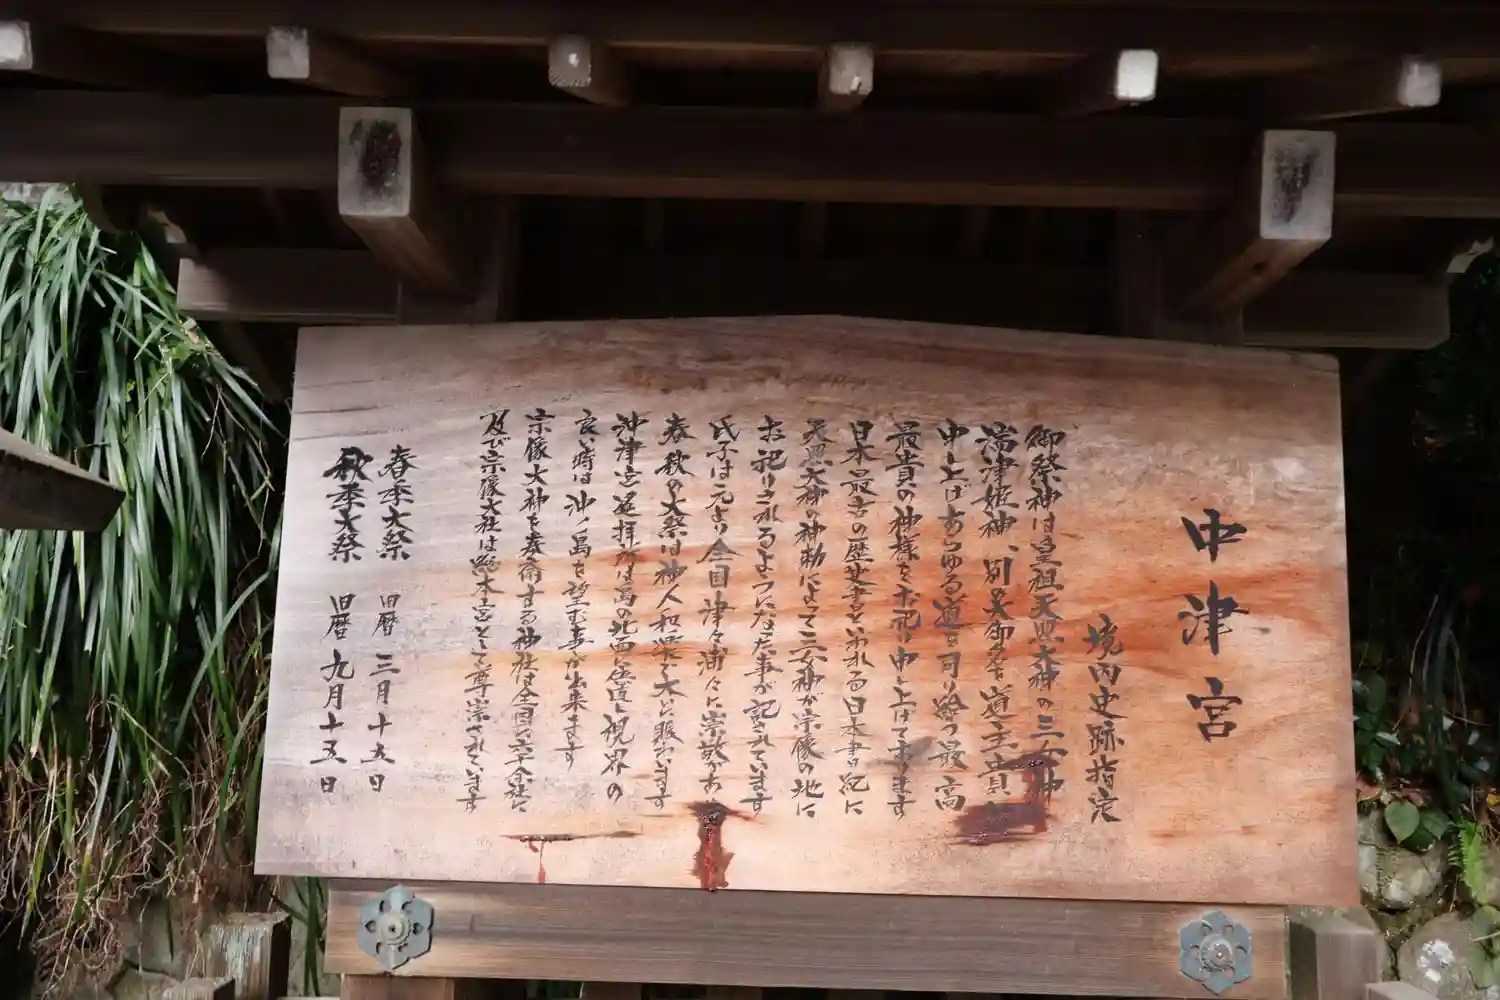 中津宮
境内史跡指定
御祭神は皇祖天照大神の三女神
湍津姫神、別の大御名を道主貴と
申上げあらゆる道を司り給う最高
最貴の神様をお祀り申し上げて来ます
日本最古の歴史書といわれる日本書紀に
天照大神の神勅によって三女神が宗像の地に
お祀りされるようになった事が記されています
氏子は元より全国津々浦々に崇敬があ
春秋の大祭は神人和楽で大いに賑わいます
沖津宮遥拝所は島の北西に位置し視界の
良い時は沖ノ島を望む事が出来ます
宗像大神を奉斎する神社は全国に六千余社に
及び宗像大社は総本宮として尊崇されています
春季大祭 旧暦 三月十五日
秋季大祭 旧暦 九月十五日